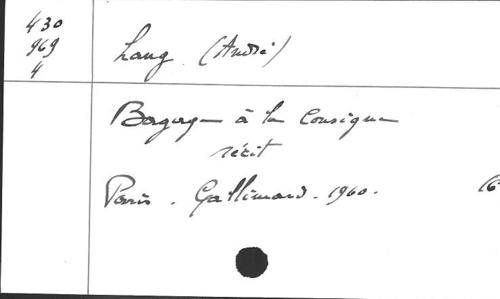 430
969
4
Lang (André)
Bagages à la Consigne
récit
Paris. Gallimard. 1960. 16